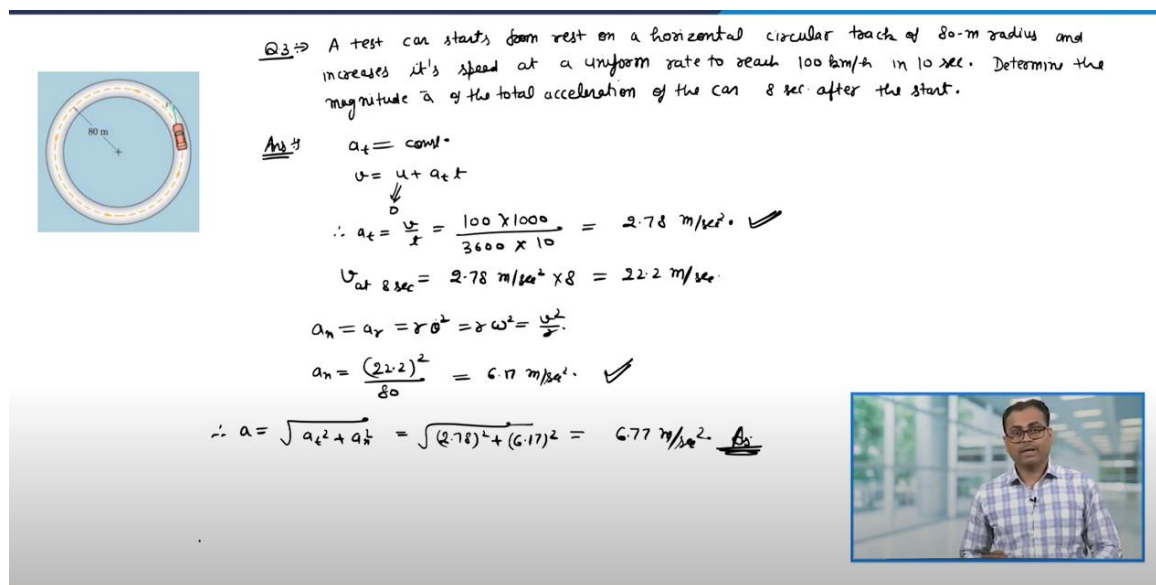 80 m
Q3⇒ A test car starts from rest on a horizontal circular track of 80-m radius and
increases it's speed at a uniform rate to reach 100 km/h in 10 sec. Determine the
magnitude ā of the total acceleration of the car 8 sec. after the start.
Ans⇒ a_t = const.
v = u + a_t t
0
∴ a_t = v/t = (100 × 1000)/(3600 × 10) = 2.78 m/sec². ✓
v_at 8 sec = 2.78 m/sec² × 8 = 22.2 m/sec.
a_n = a_r = rθ̇² = rω² = v²/r.
a_n = (22.2)²/80 = 6.17 m/sec². ✓
∴ a = √(a_t² + a_n²) = √((2.78)² + (6.17)²) = 6.77 m/sec². As